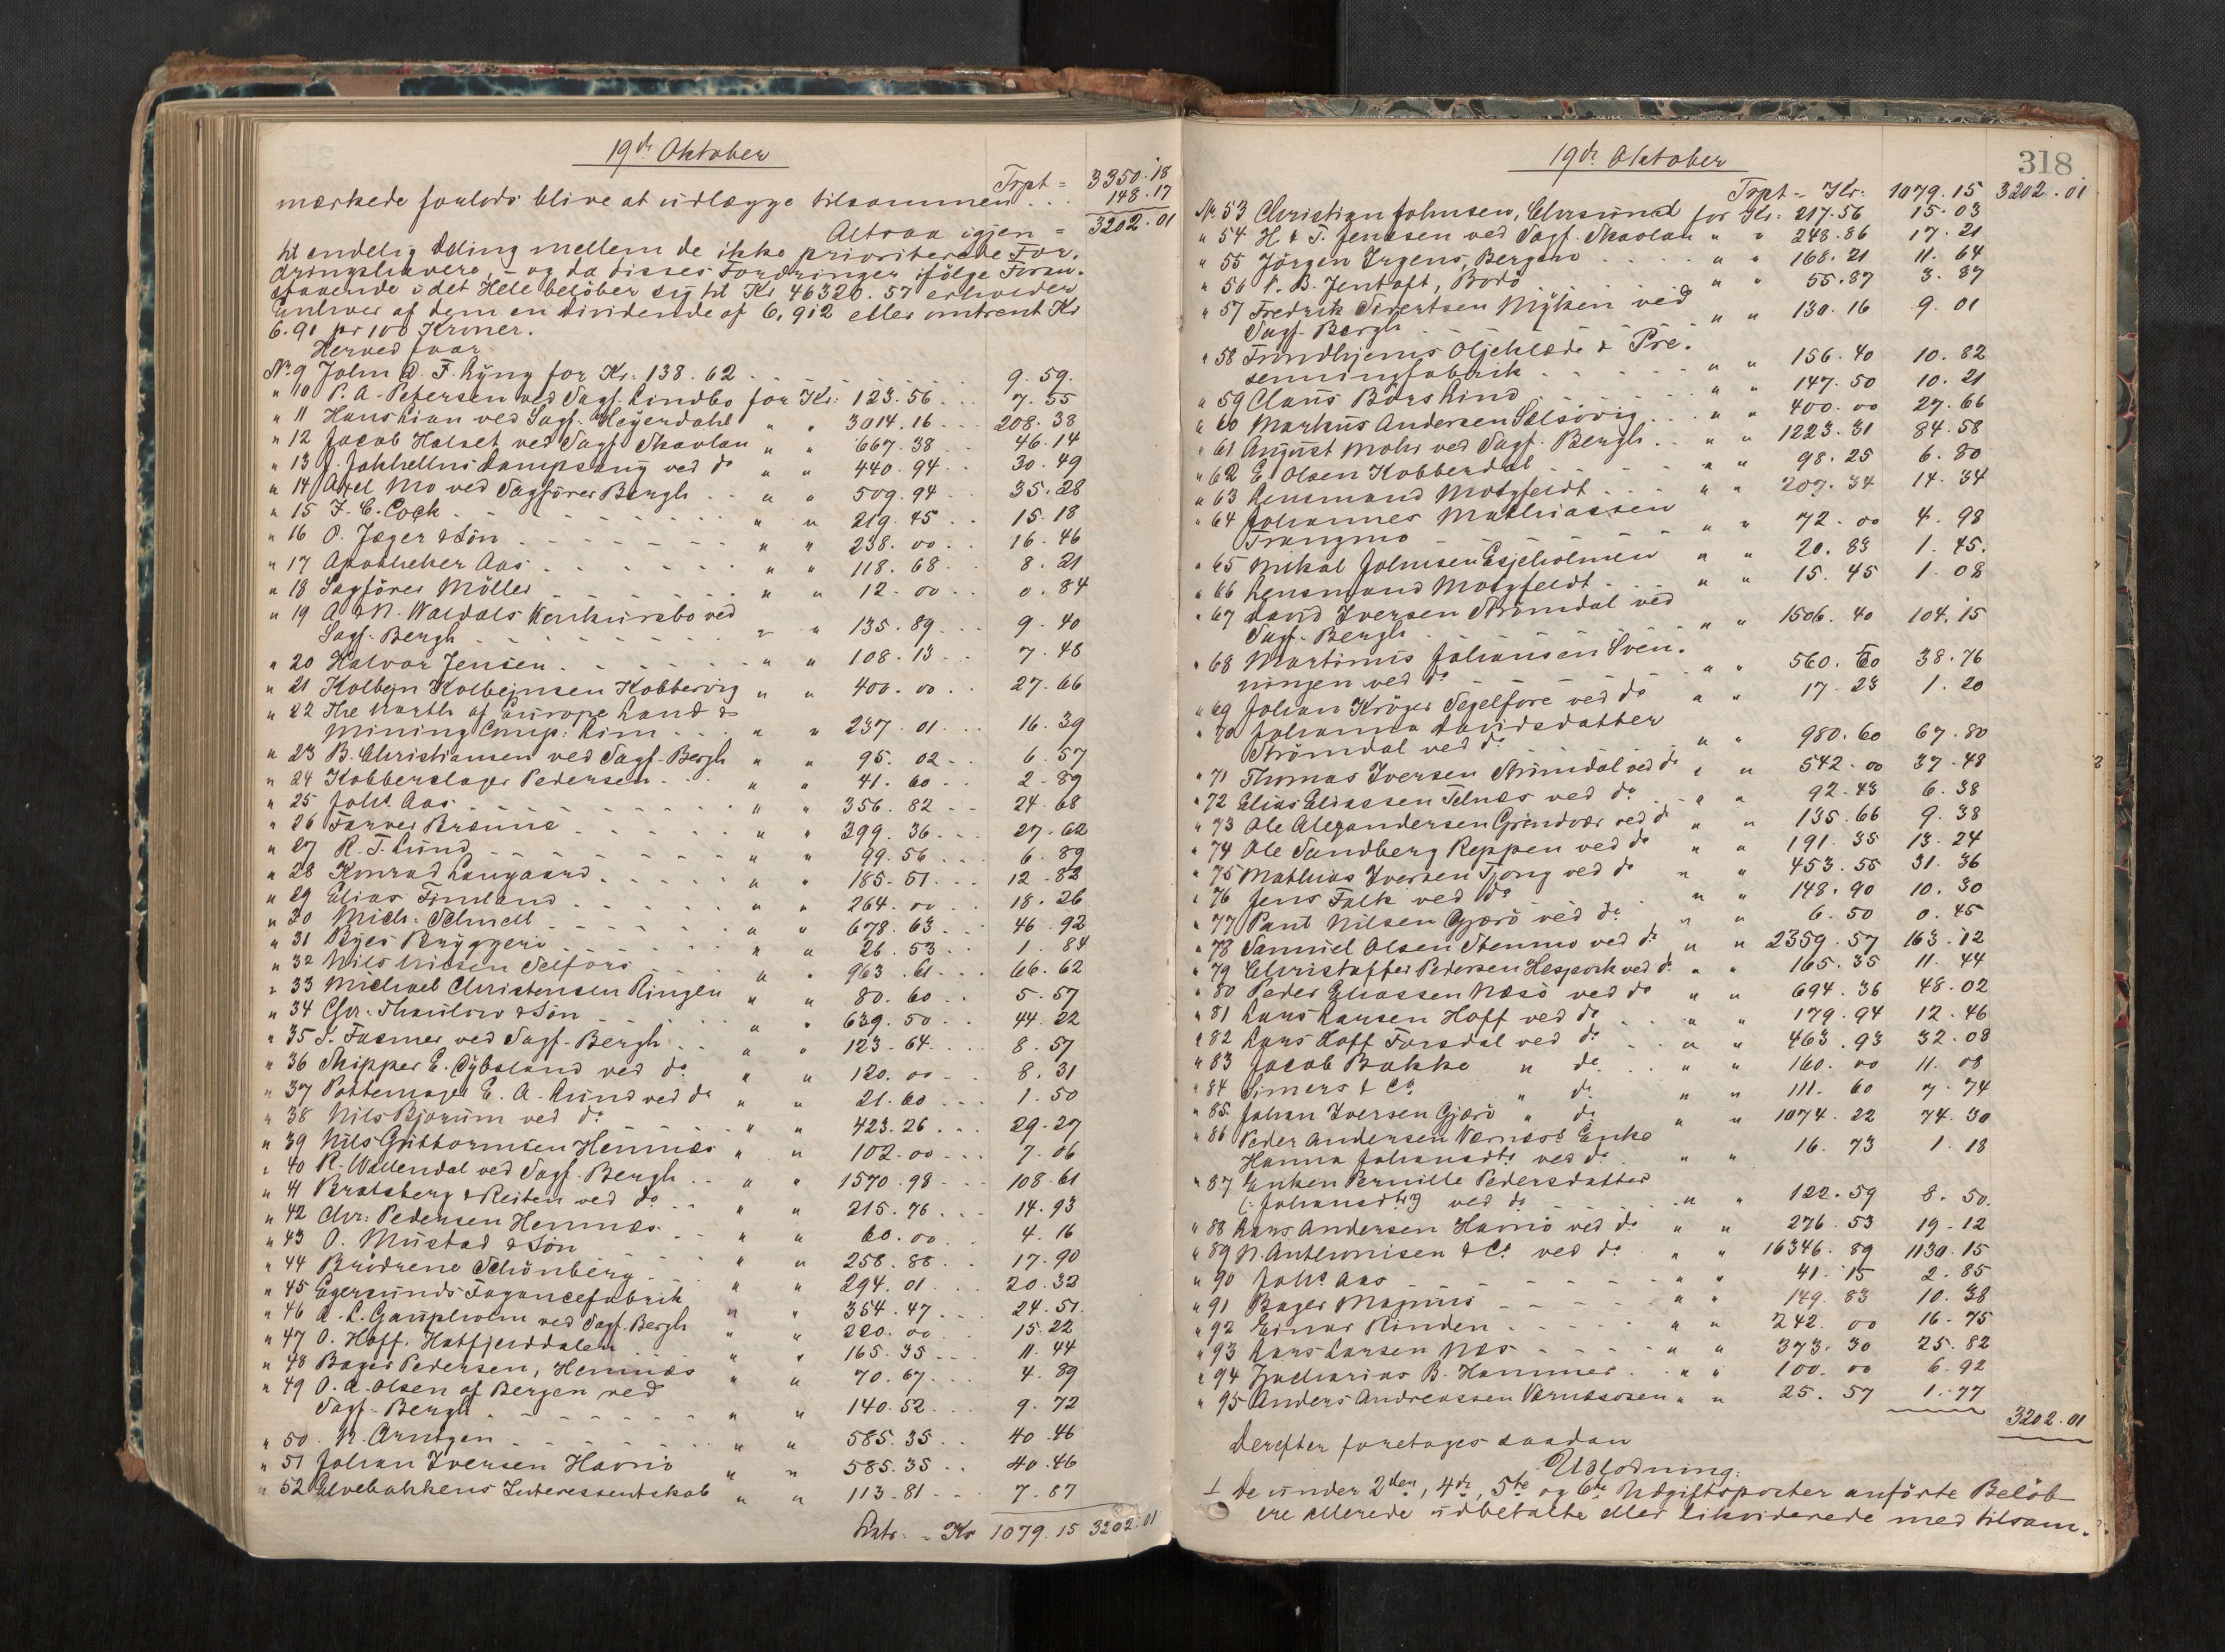 19de Oktober
Trpt = 3350.18
mærkede forlods blive at udlægge tilsammen . . . 148.17
Altsaa igjen = 3202.01
til endelig Deling mellem de ikke prioriterede For-
dringshavere, – og da disses Fordringer ifölge Foran-
staaende i det Hele belöber sig til Kr 46320.57 erholder
Enhver af dem en Dividende af 6,912 eller omtrent Kr
6.91 pr 100 Kroner.
Herved faar
No 9 John D. F. Lyng for Kr: 138.62 9.59.
" 10 P. A. Petersen ved Sagf. Lindbo for Kr: 123.56 7.55
" 11 Hans Lian ved Sagf. Heyerdahl " " 3014.16 208.38
" 12 Jacob Halset ved Sagf. Skavlan " " 667.38 46.14
" 13 J. Jakhellns Dampsaug ved do " " 440.94 30.49
" 14 Axel Mo ved Sagförer Bergh " " 509.94 35.28
" 15 F. C. Cock " " 219.45 15.18
" 16 O. Jæger & Sön " " 238.00 16.46
" 17 Apotheker Aas " " 118.68 8.21
" 18 Sagförer Möller " " 12.00 0.84
" 19 A & N. Waldals Konkursbo ved
Sagf. Bergh " " 135.89 9.40
" 20 Halvor Jensen " " 108.13 7.48
" 21 Kolbejn Kolbejnsen Kobbervig " " 400.00 27.66
" 22 The North of Europe Land &
Mining Comp: Lim " " 237.01 16.39
" 23 B. Christiansen ved Sagf. Bergh " " 95.02 6.57
" 24 Kobberslager Pedersen " " 41.60 2.89
" 25 Johs Aas " " 356.82 24.68
" 26 Farver Brænne " " 399.36 27.62
" 27 R. F. Lund " " 99.56 6.89
" 28 Konrad Langaard " " 185.51 12.83
" 29 Elias Finland " " 264.00 18.26
" 30 Mich. Schnell " " 678.63 46.92
" 31 Byes Bryggeri " " 26.53 1.84
" 32 Nils Nilsen Selfors " " 963.61 66.62
" 33 Michael Christensen Ringen " " 80.60 5.57
" 34 Chr. Thaulow & Sön " " 639.50 44.22
" 35 S. Fasmer ved Sagf. Bergh " " 123.64 8.57
" 36 Skipper E. Dybsland ved do " " 120.00 8.31
" 37 Pottemager E. A. Lund ved do " " 21.60 1.50
" 38 Nils Bjorum ved do " " 423.26 29.27
" 39 Nils Guttormsen Hemnæs " " 102.00 7.06
" 40 R. Wallendal ved Sagf. Bergh " " 1570.98 108.61
" 41 Bratsberg & Reiten ved do " " 215.76 14.93
" 42 Chr: Pedersen Hemnæs " " 60.00 4.16
" 43 O. Mustad & Sön " " 258.88 17.90
" 44 Brödrene Schönberg " " 294.01 20.32
" 45 Egersunds Fayancefabrik " " 354.47 24.51
" 46 A. L. Gaupholm ved Sagf. Bergh " " 220.00 15.22
" 47 O. Hoff, Hatfjelddalen " " 165.35 11.44
" 48 Bager Pedersen, Hemnæs " " 70.67 4.89
" 49 O. A. Olsen af Bergen ved
Sagf. Bergh " " 140.52 9.72
" 50 N. Arntzen " " 585.35 40.46
" 51 Johan Iversen Havnö " " 585.35 40.46
" 52 Elvebakkens Interessentskab " " 113.81 7.87
Kr 1079.15 3202.01
318
19de Oktober
Trpt = Kr: 1079.15 3202.01
No 53 Christian Johnsen, Chrsund for Kr: 217.56 15.03
" 54 H. & F. Jenssen ved Sagf. Skavlan " " 248.86 17.21
" 55 Jörgen Irgens, Bergen " " 168.21 11.64
" 56 P. B. Jentoft, Bodö " " 55.87 3.87
" 57 Fredrik Sivertsen Myken ved
Sagf. Bergh " " 130.16 9.01
" 58 Trondhjems Oljeklæde & Præ-
senningfabrik " " 156.40 10.82
" 59 Claus Börs Lind " " 147.50 10.21
" 60 Markus Andersen Selsövig " " 400.00 27.66
" 61 August Mohr ved Sagf. Bergh " " 1223.31 84.58
" 62 E. Olsen Kobberdal " " 98.25 6.80
" 63 Lensmand Motzfeldt " " 207.34 14.34
" 64 Johannes Mathiassen
Trangmo " " 72.00 4.98
" 65 Mikal Johnsen Esjeholmen " " 20.83 1.45.
" 66 Lensmand Motzfeldt " " 15.45 1.08
" 67 David Iversen Strömdal ved
Sagf. Bergh " " 1506.40 104.15
" 68 Martinus Johansen Sven-
ningen ved do " " 560.60 38.76
" 69 Johan Kröger Segelfore ved do " " 17.23 1.20
" 70 Johanna Davidsdatter
Strömdal ved do " " 980.60 67.80
" 71 Thomas Iversen Strömdal ved do " " 542.00 37.48
" 72 Elias Eliassen Selnæs ved do " " 92.43 6.38
" 73 Ole Alexandersen Grindvær ved do " " 135.66 9.38
" 74 Ole Sandberg Reppen ved do " " 191.35 13.24
" 75 Mathias Iversen Tjong ved do " " 453.55 31.36
" 76 Jens Falk ved do " " 148.90 10.30
" 77 Paul Nilsen Gjærö ved do " " 6.50 0.45
" 78 Samuel Olsen Stenmo ved do " " 2359.57 163.12
" 79 Christoffer Pedersen Hespork ved do " " 165.35 11.44
" 80 Peder Eliassen Næsö ved do " " 694.36 48.02
" 81 Lars Larsen Hoff ved do " " 179.94 12.46
" 82 Lars Hoff Forsdal ved do " " 463.93 32.08
" 83 Jacob Bakke " do " " 160.00 11.08
" 84 Simers & Co " do " " 111.60 7.74
" 85 Johan Iversen Gjærö " do " " 1074.22 74.30
" 86 Peder Andersen Værnæs's Enke
Hanna Johansdtr ved do " " 16.73 1.18
" 87 Enken Pernille Pedersdatter
(: Johansdtr :) ved do " " 122.59 8.50.
" 88 Lars Andersen Havnö ved do " " 276.53 19.12
" 89 N. Anthonisen & Co ved do " " 16346.89 1130.15
" 90 Johs Aas " " 41.15 2.85
" 91 Bager Magnus " " 149.83 10.38
" 92 Einar Rinden " " 242.00 16.75
" 93 Lars Larsen Næs " " 373.30 25.82
" 94 Zacharias B. Hammer " " 100.00 6.92
" 95 Anders Andreassen Værnæsosen " " 25.57 1.77
3202.01
Derefter foretages saadan
Udlodning:
1 De under 2den, 4de, 5te og 6te Udgiftsposter anförte Belöb
ere allerede udbetalte eller likviderede med tilsam-